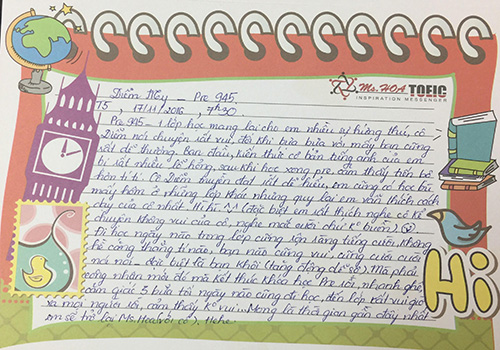 Ms. HOA TOEIC
INSPIRATION MESSENGER
Diễm My - Pre 945
T5, 17/11/2016, 7h30
Pre 945 - 1 lớp học mang lại cho em nhiều sự hứng thú, cô
Diễm nói chuyện rất vui, đôi khi bựa bựa với mấy bạn cũng
rất dễ thương. Ban đầu, kiến thức cơ bản tiếng anh của em
bị rất nhiều lỗ hổng, sau khi học xong pre cảm thấy tiến bộ
hơn tí tí. Cô Diễm truyền đạt rất dễ hiểu, em cũng có học bù
mấy hôm ở những lớp khác nhưng quy lại em vẫn thích cách
dạy của cô nhất hi hi. Đặc biệt em rất thích nghe cô kể
chuyện không vui của cô, nghe mắc cười chứ k buồn)
Đi học ngày nào trong lớp cũng rộn ràng tiếng cười không
hề căng thẳng tí nào, bạn nào cũng vui, cũng cười cười
nói nói đặc biệt là bạn Khôi (tăng động dễ sợ). Mà phải
công nhận mới đó mà kết thúc khóa học Pre rồi, nhanh ghê,
cảm giác 3 buổi tối ngày nào cũng đi học, đến lớp rất vui giờ
xa mọi người rồi, cảm thấy k vui... Mong là thời gian gần đây nhất
em sẽ trở lại Ms. Hoa (với cô). Hehe.
Hi